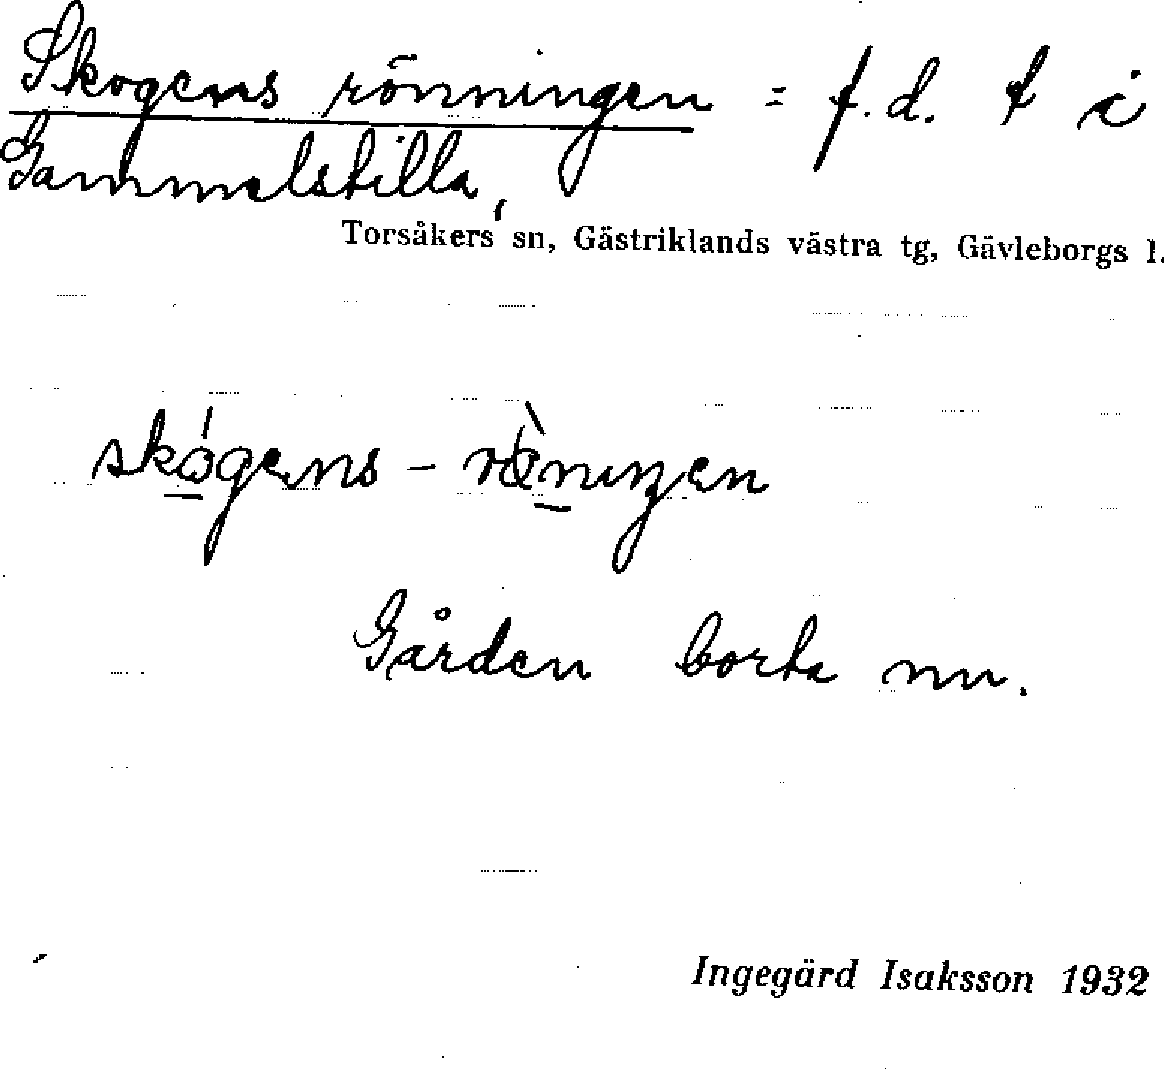 Skogens rönningen = f.d. t i
Gammelstilla,
Torsåkers sn, Gästriklands västra tg, Gävleborgs l.
skógens - rö̀niŋen
Gården borta nu.
Ingegärd Isaksson 1932